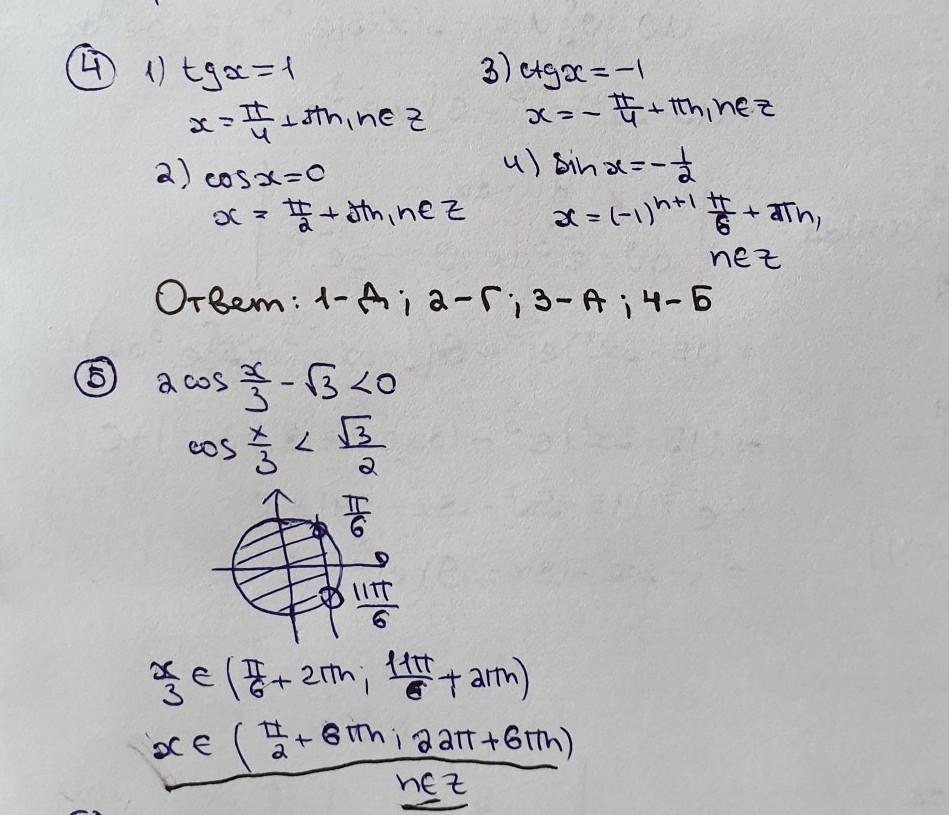 ④ 1) tgx=1
x = π/4 + πn, n∈Z
2) cosx=0
x = π/2 + πn, n∈Z
3) ctgx=-1
x = -π/4 + πn, n∈Z
4) sinx = -1/2
x = (-1)^(n+1) π/6 + πn,
n∈Z
Ответ: 1-Д; 2-Г; 3-А; 4-Б
⑤ 2cos x/3 - √3 <0
cos x/3 < √3/2
π/6
0
11π/6
x/3 ∈ (π/6 + 2πn; 11π/6 + 2πn)
x∈ (π/2 + 6πn; 22π+6πn)
n∈Z